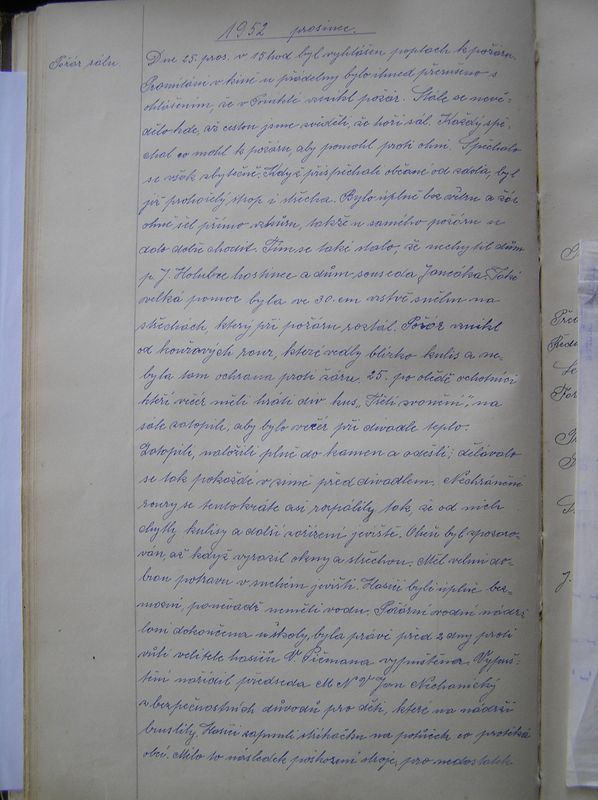 1952 prosinec.
Požár sálu.
Dne 25. pros. v 15 hod byl vyhlášen poplach k požáru.
Promítání v kině u přádelny bylo ihned přerušeno s
ohlášením, že v vznikl požár. Stále se nevě-
dělo kde, až cestou jsme zvěděli, že hoří sál. Každý spě-
chal co mohl k požáru, aby pomohl proti ohni. Spěchalo
se však zbytečně. Když přispěchali občané od zdola, byl
již prohořelý strop i střecha. Bylo úplně bez větru a žár
ohně šel přímo vzhůru, takže u samého požáru se
dalo dobře chodit. Tím se také stalo, že nechytil dům
p. J. Holubce hostinec a dům souseda Jančáka. Také
velká pomoc byla ve 30 cm vrstvě sněhu na
střechách, který při požáru roztál. Požár vznikl
od kouřových rour, které vedly blízko kulis a ne-
byla tam ochrana proti žáru. 25. po obědě ochotníci
kteří večer měli hráti div. kus „Třetí zvonění," na
sále zatopili, aby bylo večer při divadle teplo.
Zatopili, naložili plně do kamen a odešli; dělávalo
se tak pokaždé v zimě před divadlem. Nechráněné
roury se tentokráte asi rozpálily tak, že od nich
chytly kulisy a další zařízení jeviště. Oheň byl zpozoro-
ván, až když vyrazil okny a střechou. Měl velmi do-
brou potravu v suchém jevišti. Hasiči byli úplně bez-
mocní, poněvadž neměli vodu. Požární vodní nádrž
loni dokončena u školy, byla právě před 2 dny proti
vůli velitele hasičů V. Pičmana vypuštěna. Vypuš-
tění nařídil předseda M N V Jan Nechanický
z bezpečnostních důvodů pro děti, které na nádrži
bruslily. Hasiči zapnuli stříkačku na potůček, co protéká
obcí. Mělo to následek poškození stroje, pro nedostatek